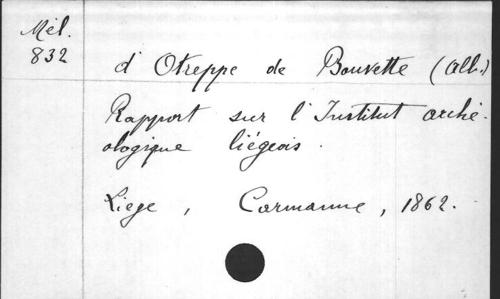 Mél.
832
d'Otreppe de Bouvette (Alb.)
Rapport sur l'Institut arché-
ologique liégeois.
Liege, Carmanne, 1862.